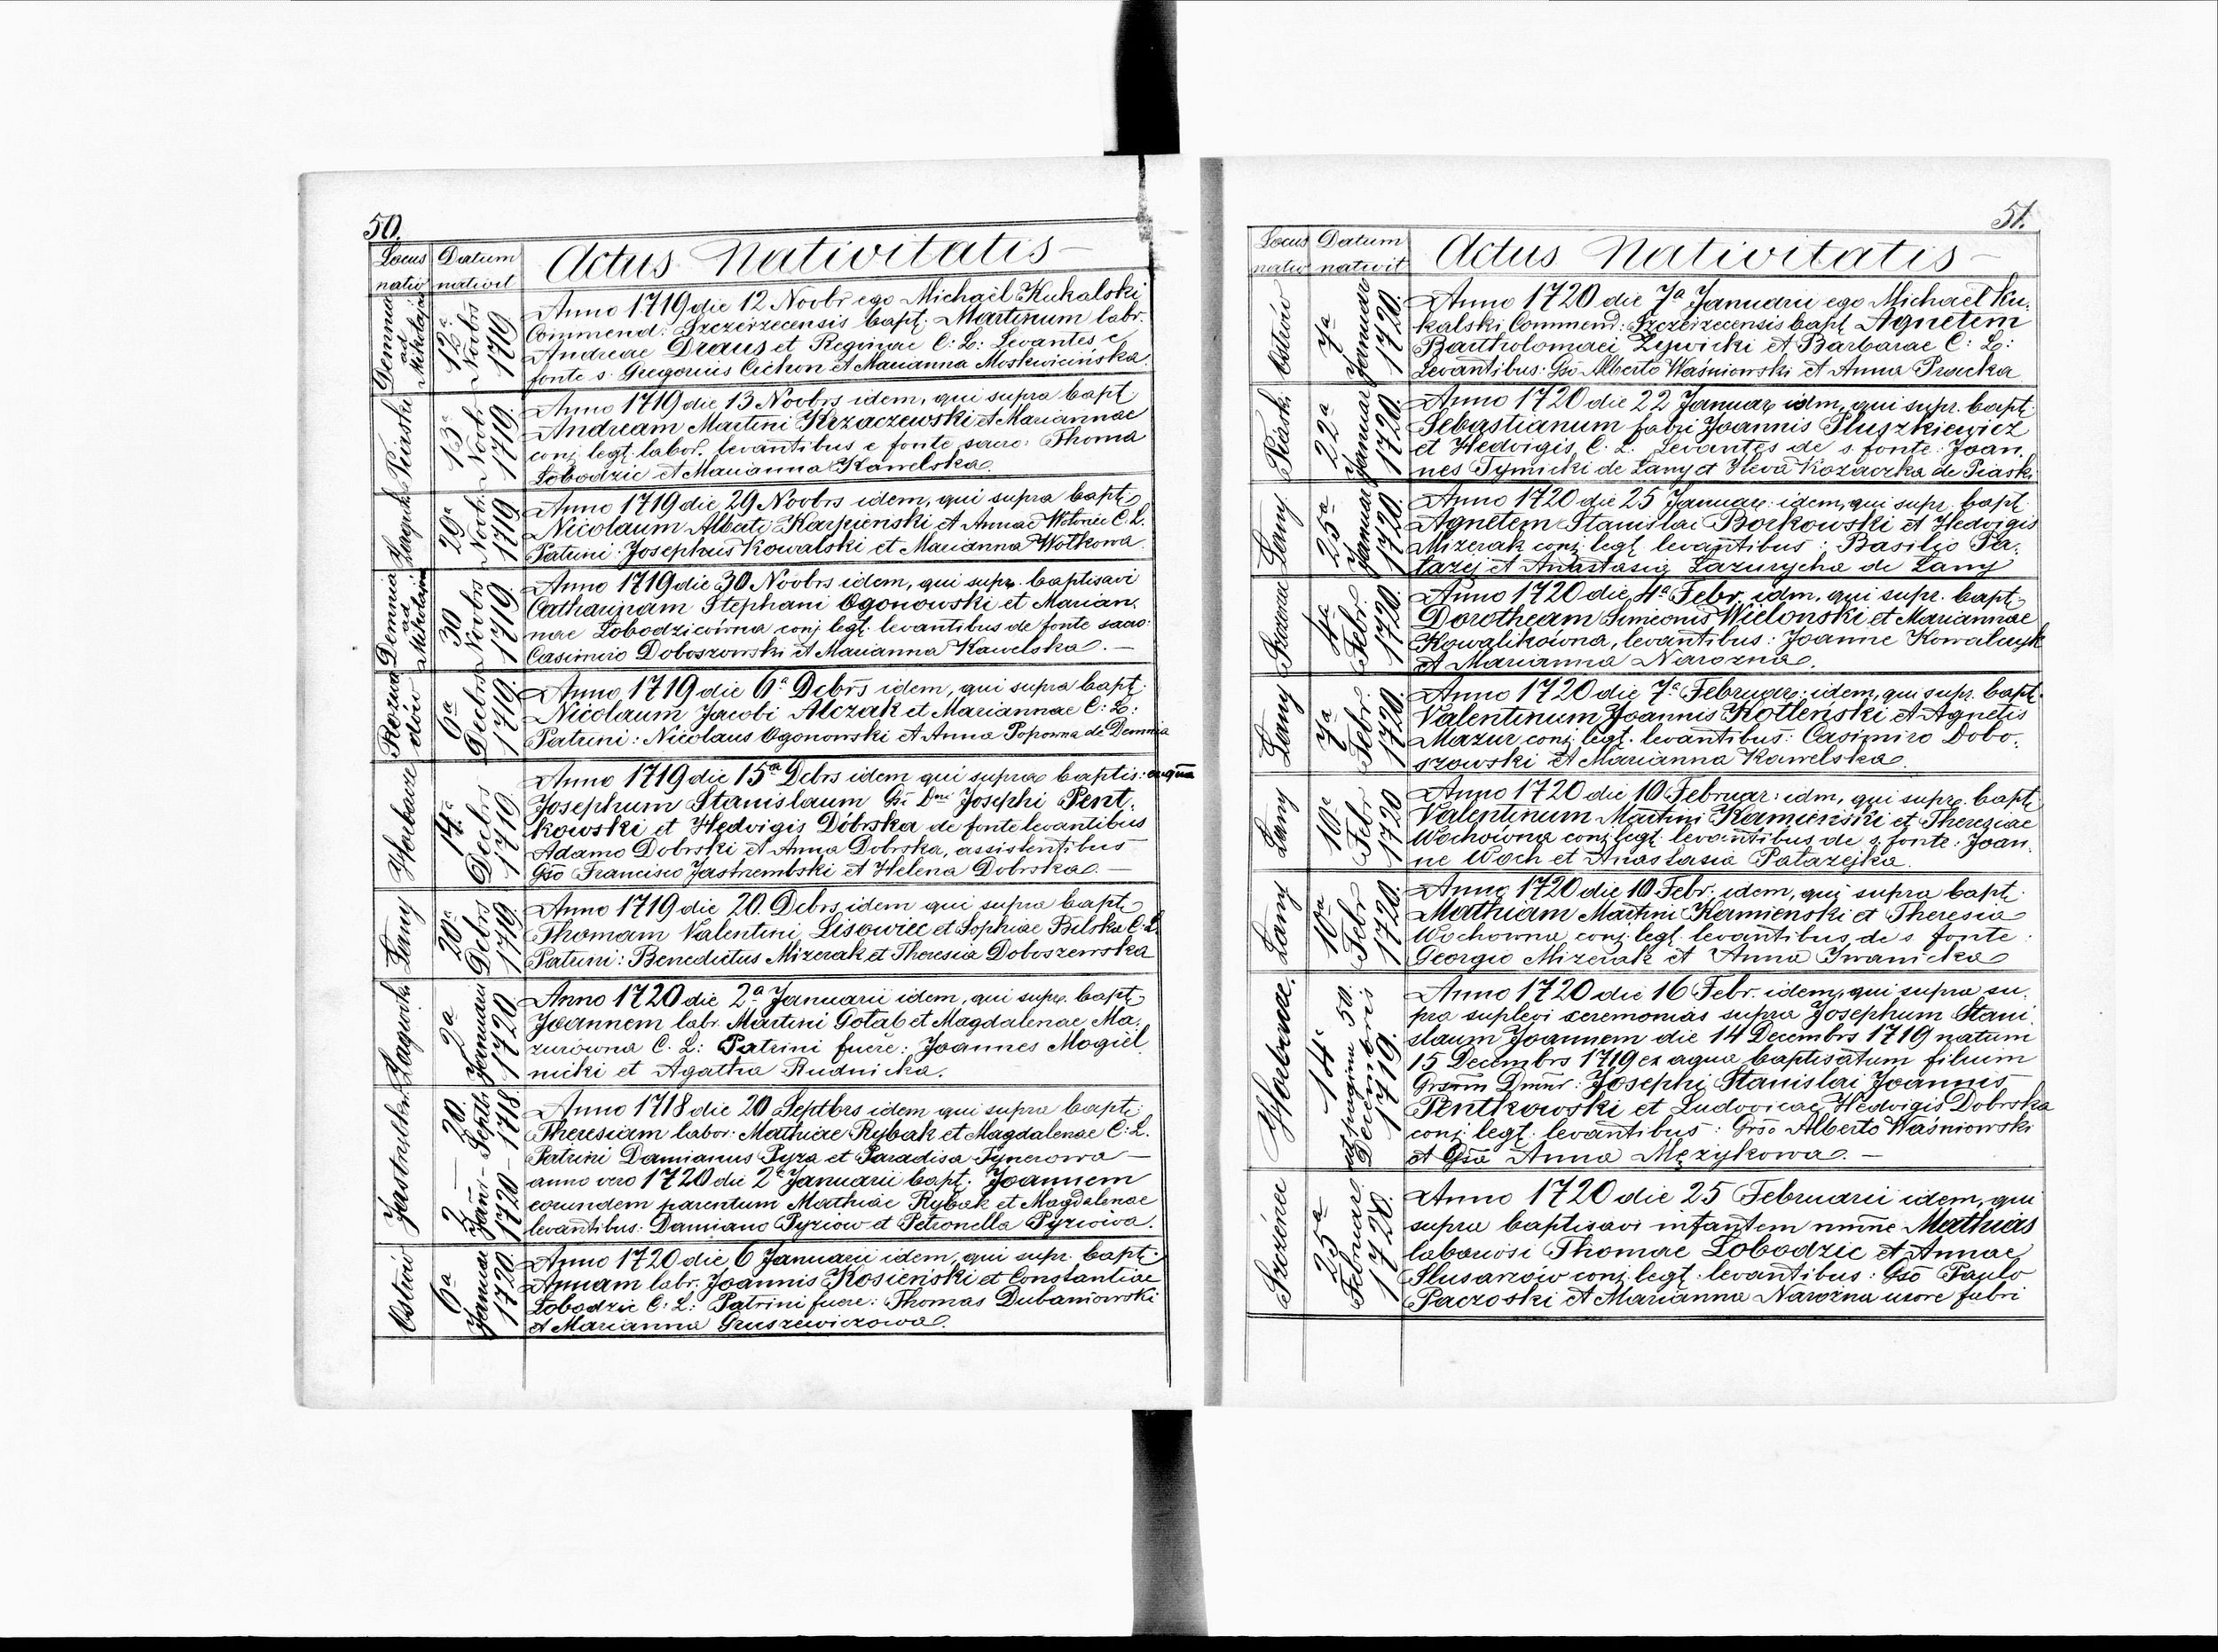 50.
Locus nativ
Datum nativit
Actus Nativitatis
Demnia ad Mikołajów
12a Novbrs 1719
Anno 1719 die 12 Novbr ego Michaël Kukalski
Commend: Szczerzecensis bapt: Martinum labr.
Andreae Draus et Reginae C: L: Levantes e
fonte s. Gregorius Cichon et Marianna Moskwicińska
Piaski
13a Novbr 1719.
Anno 1719 die 13 Novbrs idem, qui supra bapt
Andream Martini Krzaczewski et Mariannae
conj. legt. labor. levantibus e fonte sacro: Thoma
Łobodzic et Marianna Kawelska.
29a Novbr. 1719
Anno 1719 die 29 Novbrs idem, qui supra bapt
Nicolaum Alberti Karpieński et Annae C. L.
Patrini: Josephus Kowalski et Marianna Wołkowa
Demnia ad Mikołajów
30 Novbrs 1719.
Anno 1719 die 30 Novbrs idem, qui supr. baptisavi
Catharinam Stephani Ogonowski et Marian.
nae Łobodzicówna conj. legt. levantibus de fonte sacro:
Casimiro Doboszowski et Marianna Kawelska. —
6a Decbrs 1719.
Anno 1719 die 6a Dcbrs idem, qui supra bapt.
Nicolaum Jacobi Alczak et Mariannae C: L:
Patrini: Nicolaus Ogonowski et Anna Popowna de Demnia
Horbacze
14a Decbrs 1719
Anno 1719 die 15a Dcbrs idem qui supra baptis: aqua
Josephum Stanislaum Gsi Dni Josephi Pent.
kowski et Hedvigis Dobrska de fonte levantibus
Adamo Dobrski et Anna Dobrska, assistentibus
Gso Francisco Jastrzembski et Helena Dobrska. —
Łany
20a Dcbrs 1719.
Anno 1719 die 20. Dcbrs idem qui supra bapt
Thomam Valentini Lisowiec et Sophiae Bilska C: L
Patrini: Benedictus Mizerak et Theresia Doboszewska
2a Januarii 1720
Anno 1720 die 2a Januarii idem, qui supr. bapt
Joannem labr. Martini Gołab et Magdalenae Ma.
zurówna C. L: Patrini fuere: Joannes Mogiel
nicki et Agatha Rudnicka.
20. Septb. 1718
2 Jani 1720
Anno 1718 die 20 Septbrs idem qui supra bapt:
Theresiam labor: Mathiae Rybak et Magdalenae C: L.
Patrini Damianus Pyza et Paradisa —
anno vero 1720 die 2a Januarii bapt. Joannem
eorundem parentum Mathiae Rybak et Magdalenae
levantibus: Damiano Pyziow et Petronella Pyziowa.
Ostrów
6a Januar 1720
Anno 1720 die 6 Januarii idem, qui supr. bapt:
Annam labr. Joannis Kosieński et Constantiae
Łobodzic C: L: Patrini fuere: Thomas Dubaniowski
et Marianna Gruszewiczowa.
51.
Locus nativ
Datum nativit
Actus Nativitatis
Ostrów
7a Januar 1720.
Anno 1720 die 7a Januarii ego Michael Ku.
kalski Commend: Szczerzecensis bapt Agnetem
Bartholomaei Zywicki et Barbarae C: L:
Levantibus: Gso Alberto Waśniowski et Anna Pracka
Piaski
22a Januar 1720.
Anno 1720 die 22 Januar idm, qui supr. bapt:
Sebastianum fabri Joannis Pluszkiewicz
et Hedvigis C. L. Levantes de s. fonte: Joan.
nes Tymicki de Łany et Heva Kozaczka de Piaski
Łany
25a Januar 1720.
Anno 1720 die 25 Januar: idem, qui supr. bapt.
Agnetem Stanislai Borkowski et Hedvigis
Mizerak conj. legt. levantibus: Basilio Pa.
łazej et Anastasia Łazurycha de Łany
4a Febr. 1720.
Anno 1720 die 4a Febr. idm, qui supr. bapt
Dorotheam Simeonis Wielonski et Mariannae
Kowalikówna, levantibus: Joanne Kowalczyk
et Marianna Narozna.
Łany
7a Febr. 1720.
Anno 1720 die 7a Februar: idem, qui supr. bapt.
Valentinum Joannis Kotleński et Agnetis
Mazur conj. legt. levantibus: Casimiro Dobo.
szowski et Marianna Kawelska.
Łany
10a Febr 1720
Anno 1720 die 10 Februar: idm, qui supr. bapt
Valentinum Martini Kamieński et Theresiae
Wochówna conj. legt. levantibus de s. fonte: Joan.
ne Woch et Anastasia Pałazejka.
Łany
10a Febr 1720.
Anno 1720 die 10 Febr. idem, qui supra bapt.
Mathiam Martini Kamienski et Theresia
Wochowna conj. legt. levantibus de s fonte:
Georgio Mizerak et Anna Iwanicka
Horbacze.
14a Decembris 1719.
ut pagina 50.
Anno 1720 die 16 Febr. idem, qui supra su.
pra suplevi ceremonias supra Josephum Stani
slaum Joannem die 14 Decembrs 1719 natum
15 Decembrs 1719 ex aqua baptisatum filium
Grsum Dmnr: Josephi Stanislai Joannis
Pentkowski et Ludovicae Hedvigis Dobrska
conj. legt. levantibus: Grso Alberto Waśniowski
et Gsa Anna Mężykowa. —
25a Februar 1720.
Anno 1720 die 25 Februarii idem, qui
supra baptisavi infantem nmne Mathias
laboriosi Thomae Łobodzic et Annae
Slusarzów conj. legt. levantibus: Gso Paulo
Paczoski et Marianna Narozna uxore fabri